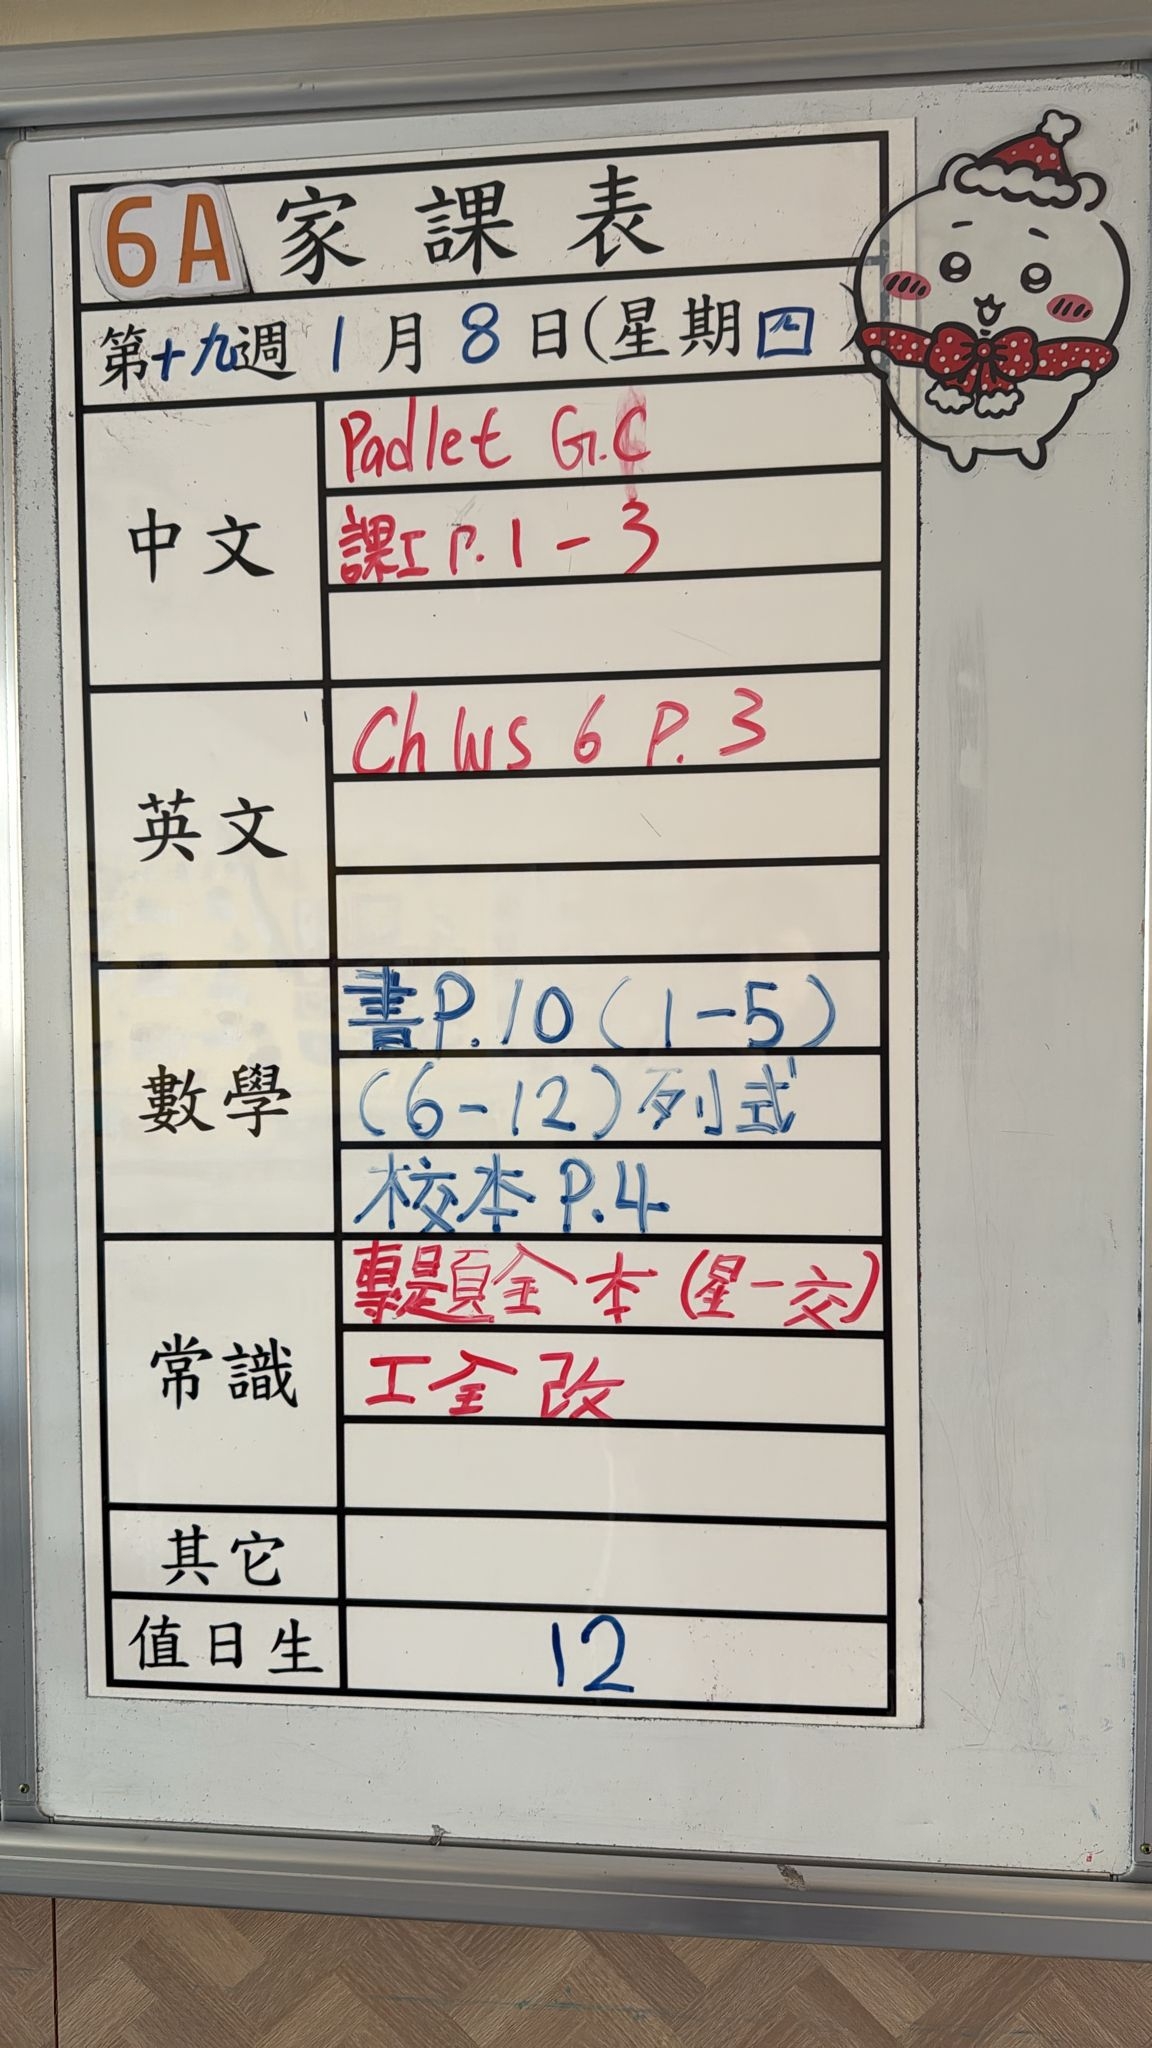 6A 家課表
第十九週 1月8日(星期四)
中文
Padlet G.C
課工 P.1-3
英文
Ch Ws 6 P.3
數學
書P.10(1-5)
(6-12)列式
校本P.4
常識
專題全本(星一交)
工全改
其它
值日生
12